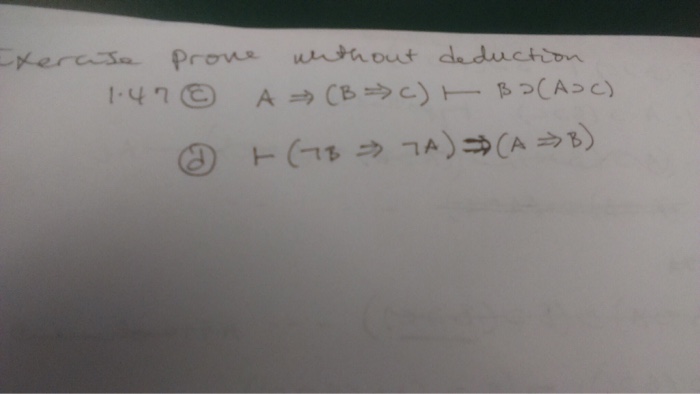 Exercise prove without deduction
1.47 ⓒ A ⇒ (B ⇒ C) ⊢ B ⊃ (A ⊃ C)
ⓓ ⊢ (¬B ⇒ ¬A) ⇒ (A ⇒ B)